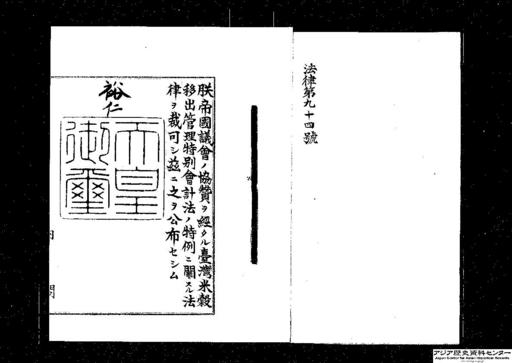 法律第九十四號
朕帝國議會ノ協贊ヲ經タル臺灣米穀
移出管理特別會計法ノ特例ニ關スル法
律ヲ裁可シ茲ニ之ヲ公布セシム
裕仁
天皇
御璽
アジア歴史資料センター
Japan Center for Asian Historical Records